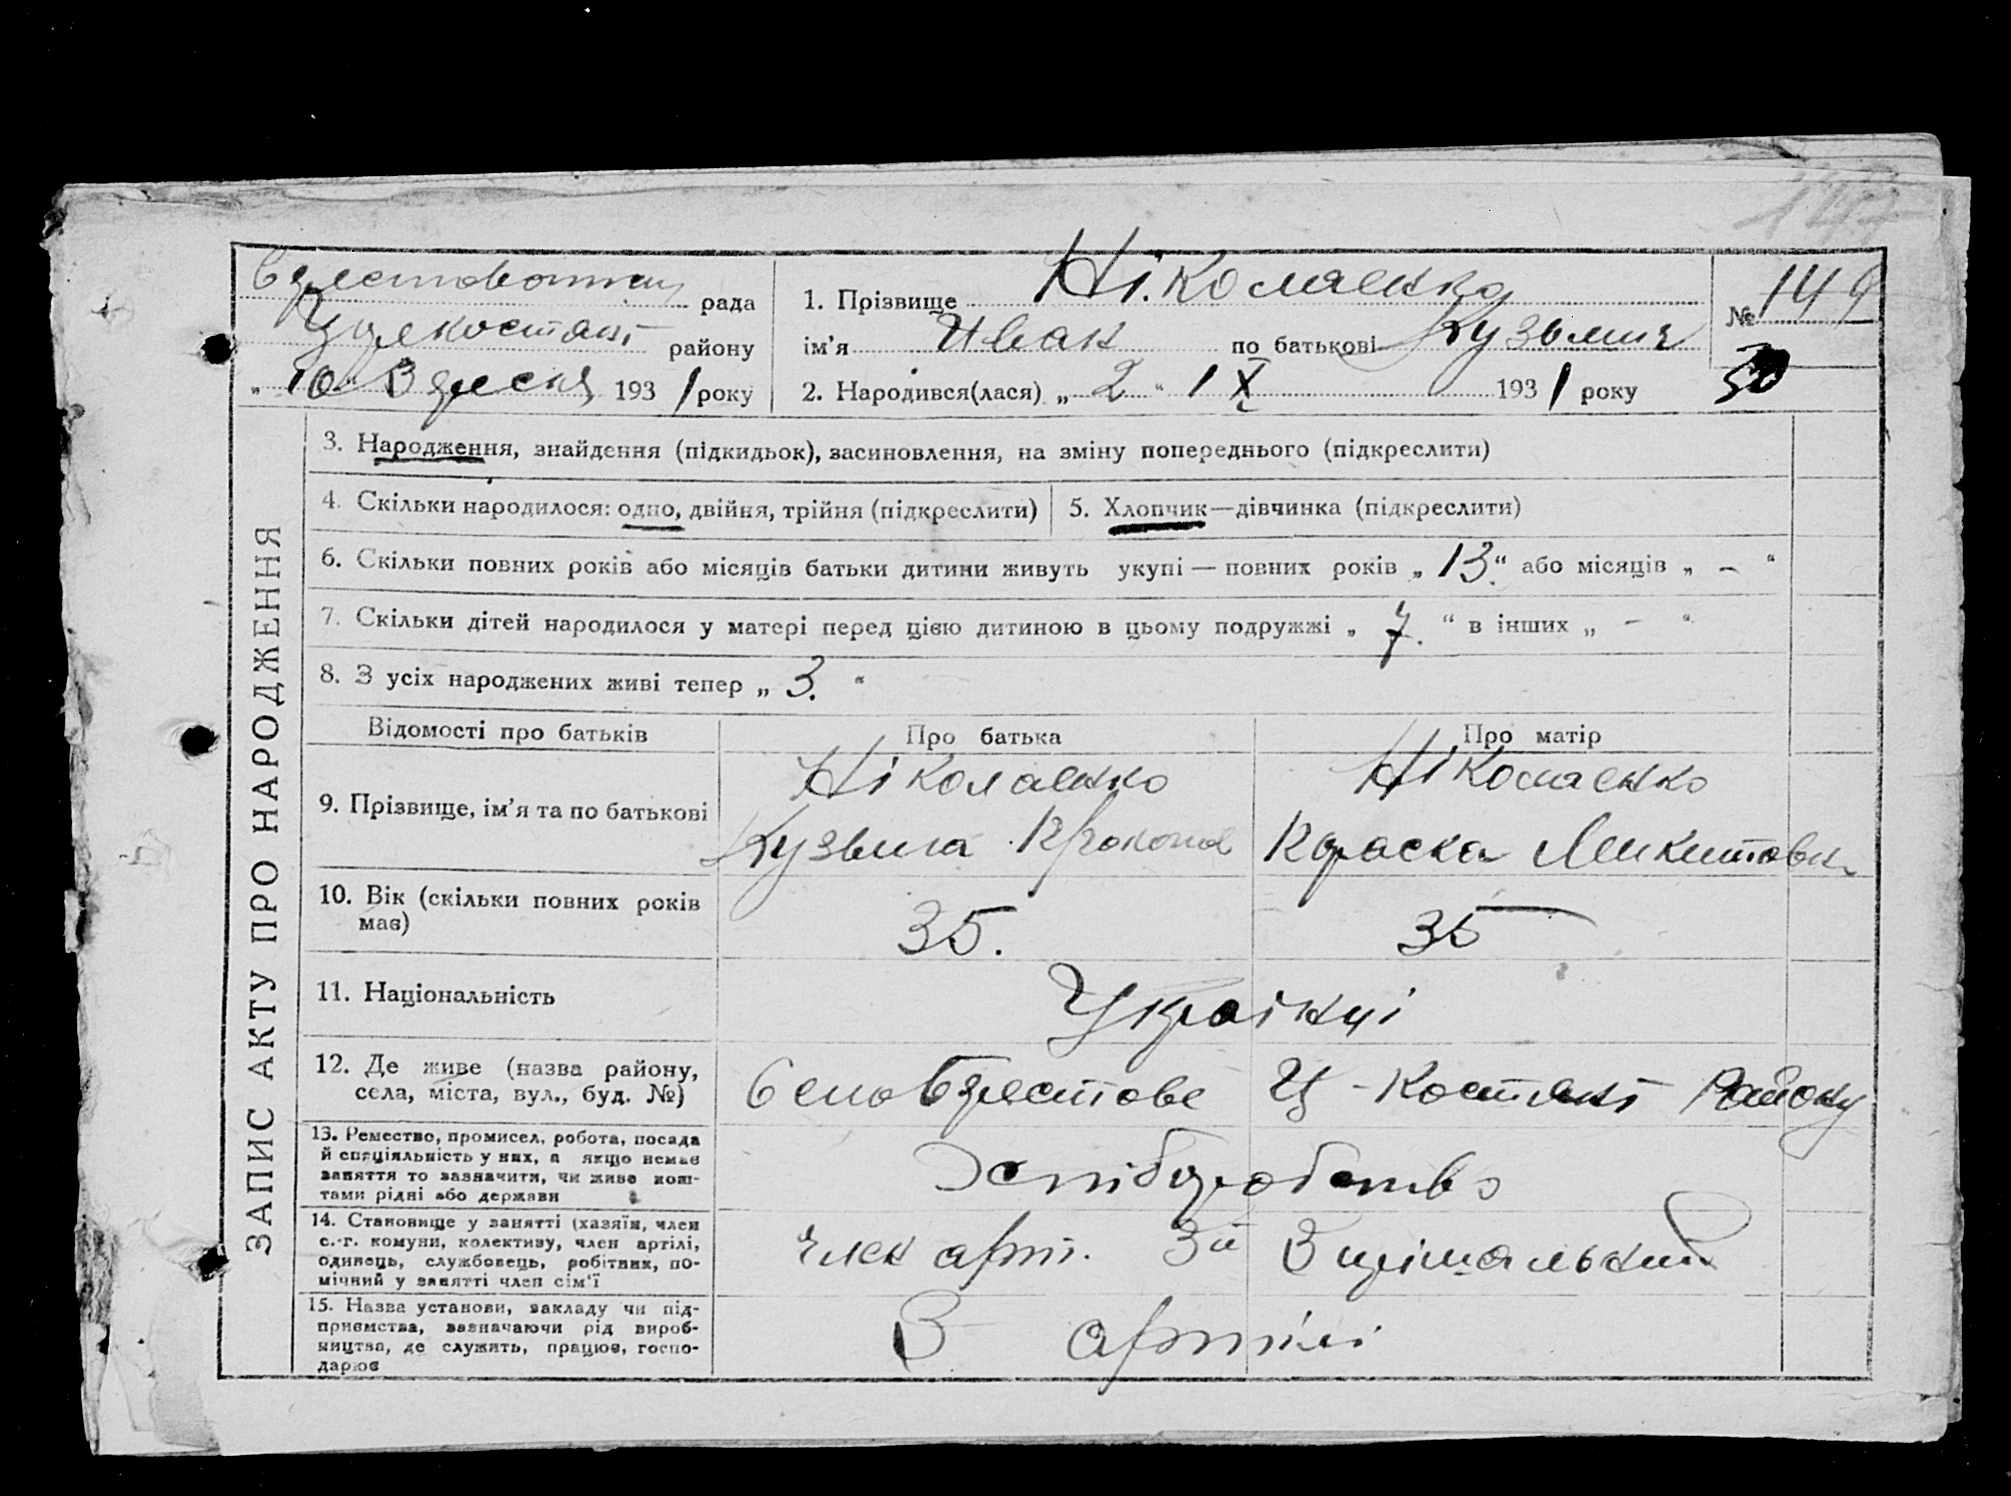 147
рада
району
"10" Вресня 1931 року
1. Прізвище Ніколаєнко
ім'я Иван по батькові Кузьмич
2. Народився(лася) „ 2 “ IX 1931 року
№ 149
50
ЗАПИС АКТУ ПРО НАРОДЖЕННЯ
3. Народження, знайдення (підкидьок), засиновлення, на зміну попереднього (підкреслити)
4. Скільки народилося: одно, двійня, трійня (підкреслити)
5. Хлопчик—дівчинка (підкреслити)
6. Скільки повних років або місяців батьки дитини живуть укупі — повних років „ 13 “ або місяців „ – “
7. Скільки дітей народилося у матері перед цією дитиною в цьому подружжі „ 7. “ в інших „ – “
8. З усіх народжених живі тепер „ 3. “
Відомості про батьків
Про батька
Про матір
9. Прізвище, ім'я та по батькові
Ніколаєнко
Кузьма
Ніколаєнко
Микитовн
10. Вік (скільки повних років
має)
35.
35
11. Національність
Українці
12. Де живе (назва району,
села, міста, вул., буд. №)
Село Берестове Ц-Костянт Району
13. Ремество, промисел, робота, посада
й спеціяльність у них, а якщо немає
заняття то зазначити, чи живе кош-
тами рідні або держави
Хліборобство
14. Становище у занятті (хазяїн, член
с.-г. комуни, колективу, член артілі,
одинець, службовець, робітник, по-
мічний у занятті член сім'ї
член арт. 3й Вирішальний
15. Назва установи, закладу чи під-
приємства, зазначаючи рід вироб-
ництва, де служить, працює, госпо-
дарює
В артілі